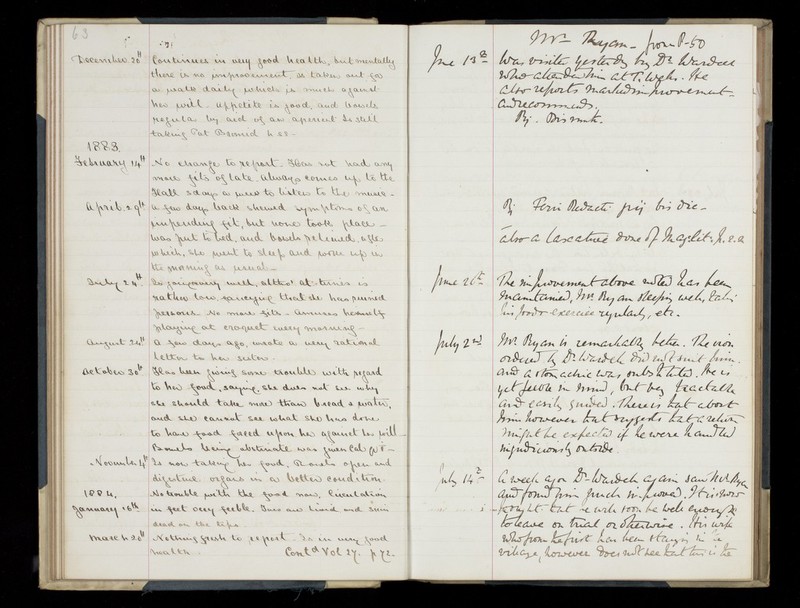 63
December 20th Continues in very good health, but mentally
there is no improvement, is taken out for
a walk daily which is much against
her will. Appetite is good, and bowels
regular by aid of an aperient. Is still
taking Pot Bromid
1883.
February 14th No change to report. Has not had any
more fits of late. Always comes up to the
Hall & days a week to listen to the music -
April 29th A few days back showed symptoms of an
impending fit, but none took place -
was put to bed, and bowels relieved, after
which, she went to sleep and woke up in
the morning as usual -
July 24th Is going on very well, altho' at times is
rather low, saying that she has ruined
persons. No more fits - Amuses herself
playing at croquet every morning -
August 24th A few days ago, wrote a very rational
letter to her sister.
October 30th Has been giving some trouble with regard
to her food, saying, she does not see why
she should take more than bread & water,
and she cannot see what she has done
to have food forced upon her against her will -
Bowels being obstinate was given
November 14th Is now taking her food. Bowels open and
digestive organs in a better condition.
1884. No trouble with the food now. Circulation
January 16th in feet very feeble. Toes are livid and skin
dead on the tips.
March 26th Nothing fresh to report. Is in very good
health. Contd Vol 27. p 72.
Mr Ryan - from P. 50
June 13th Was visited yesterday by Dr Wardell
who attended him at T. Wells. He
also reports marked improvement -
and recommends,
Rj.
Rj. Ferri Redacti grij bis die -
also a laxative dose of
June 26th The improvement above noted has been
maintained, Mr Ryan sleeping well, taking
his food & exercise regularly, etc.
July 2nd Mr Ryan is remarkably better. The iron
ordered by Dr Wardell did not suit him
and a stomachic was substituted. He is
yet feeble in mind, but very tractable
and easily guided. There is that about
him however that suggests that a return
might be expected if he were handled
injudiciously outside.
July 14th A week ago Dr Wardell again saw Mr Ryan
and found him much improved. It is now
thought that he will soon be well enough
to leave on trial or otherwise. His wife
who from the first has been staying in the
village, however does not see that this is the